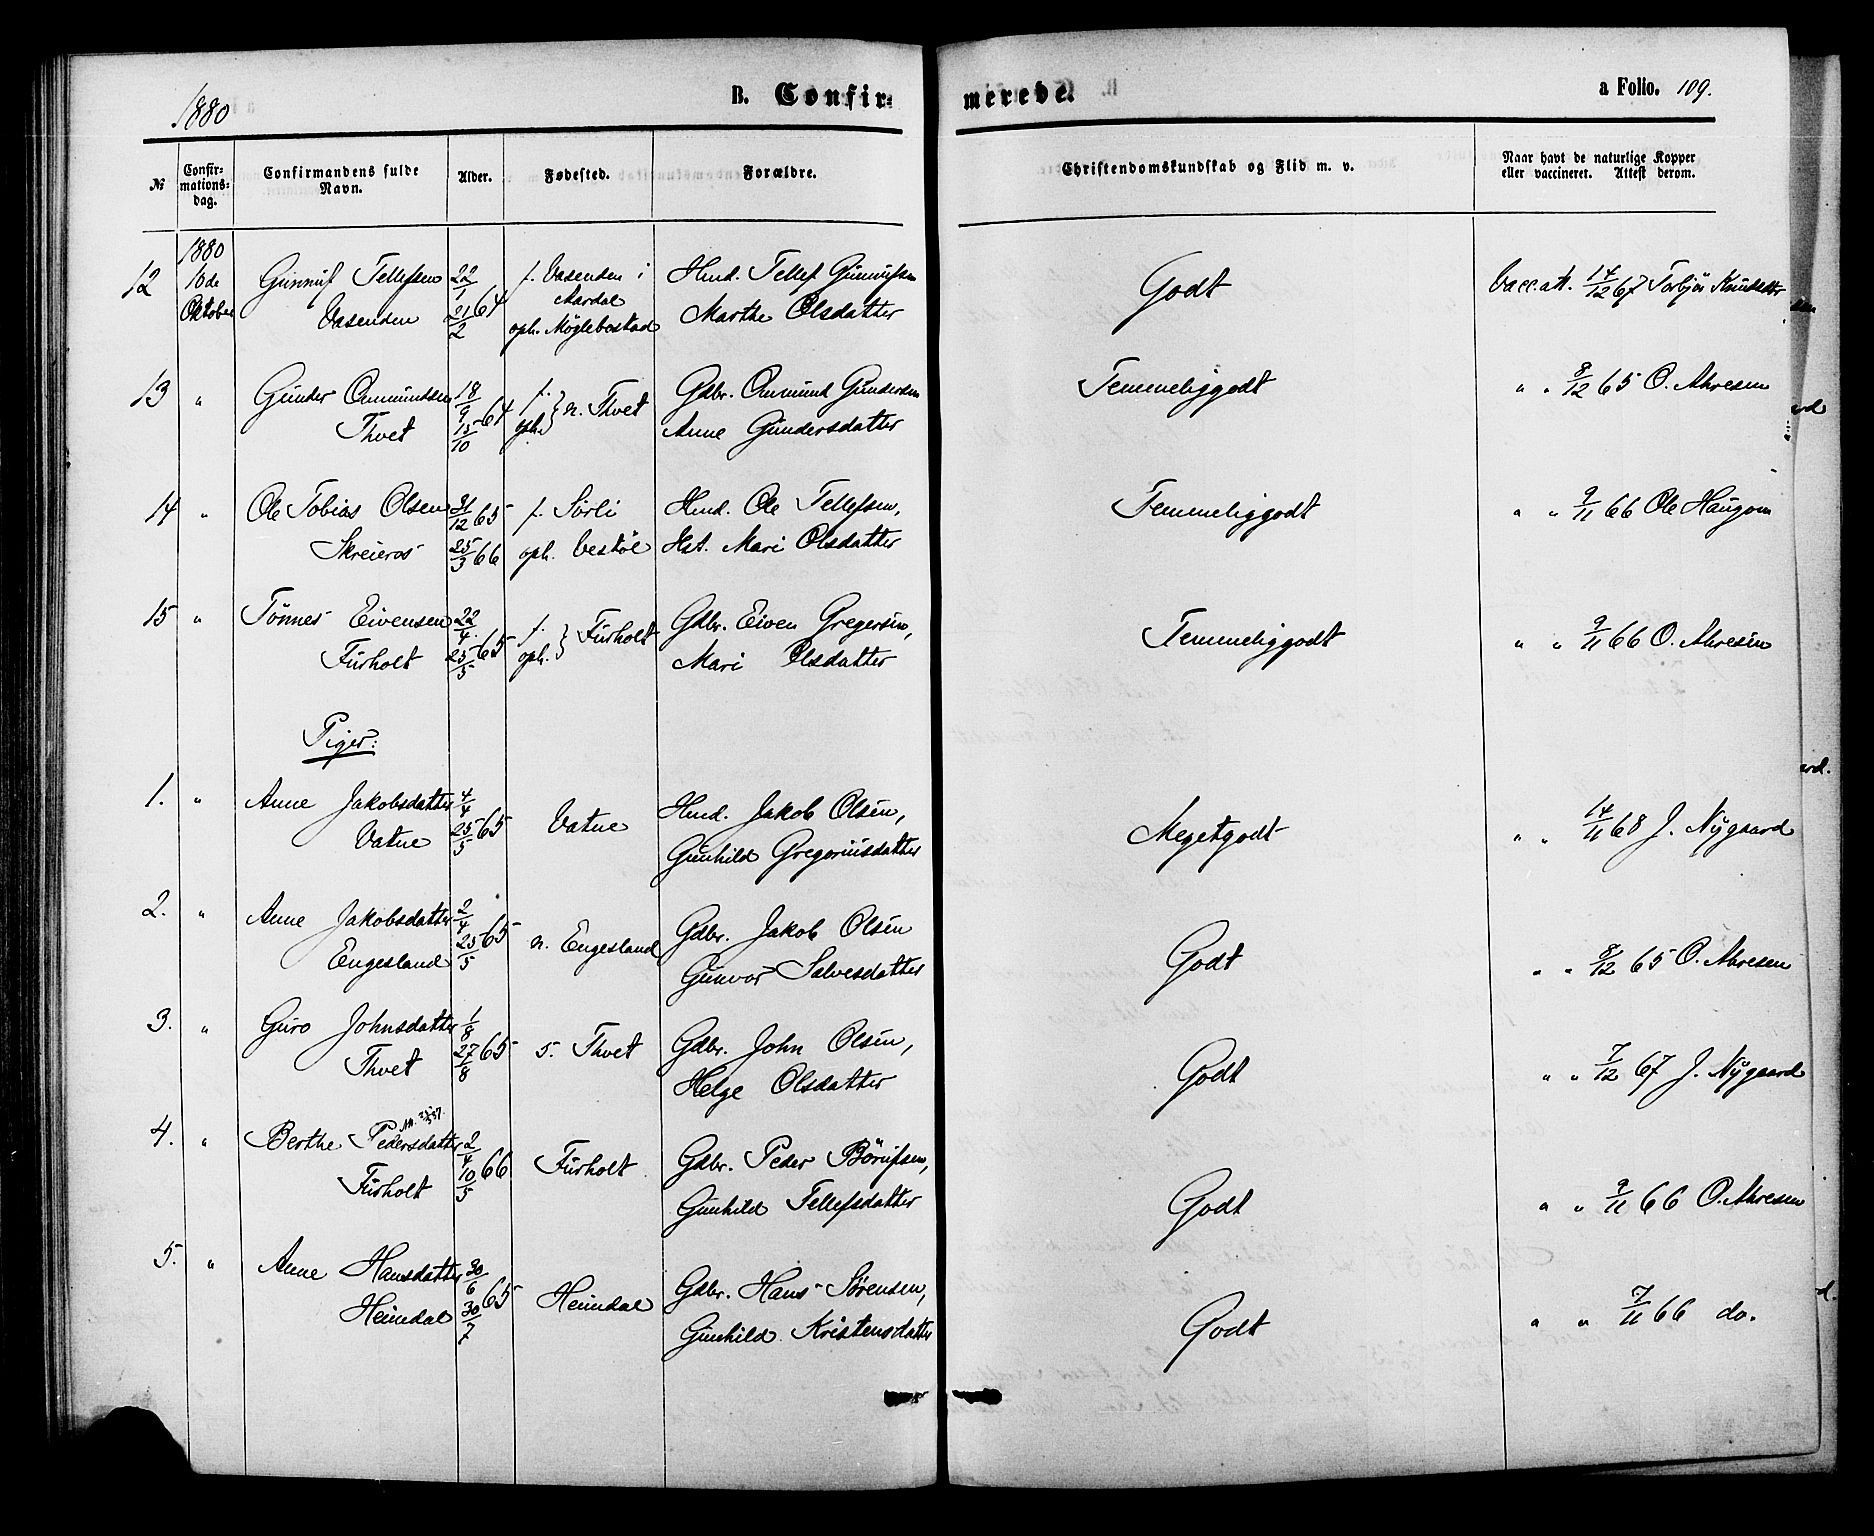 1880
B. Confir-
merede.
a Folio. 109.
№
Confir-
mations-
dag.
Confirmandens fulde
Navn.
Alder.
Fødested.
Forældre.
Christendomskundskab og Flid m. v.
Naar havt de naturlige Kopper
eller vaccineret. Attest derom.
1880
12 10de Gunnuf Tellefsen 22/1 f. Vasenden i Hmd. Tellef Gunnufsen Godt Vacc. att. 14/12 67 Torbjör
Oktober Vasenden 21/2 64 Aardal Marthe Olsdatter
oph. Møglebostad
13 " Gunder Omundsen 18/9 64 f. } n. Thvet Gdbr. Omund Gundersen Temmeliggodt " " 8/12 65 O. Ahresen
Thvet 15/10 oph. Anne Gundersdatter
14 " Ole Tobias Olsen 31/12 65 f. Sørli Hmd. Ole Tellefsen, Temmeliggodt " " 9/11 66 Ole Haugom
Skreieros 25/3 66 oph. Vestöl Hst. Mari Olsdatter
15 " Tönnes Eivensen 22/4 65 f. } Furholt Gdbr. Eiven Gregersen, Temmeliggodt " " 9/11 66 O. Ahresen
Furholt 25/5 oph. Mari Olsdatter
Piger:
1. " Anne Jakobsdatter 4/4 65 Vatne Hmd. Jakob Olsen, Megetgodt " " 14/11 68 J. Nygaard
Vatne 25/5 Gunhild Gregoriusdatter
2. " Anne Jakobsdatter 2/4 65 n. Engesland Gdbr. Jakob Olsen Godt " " 8/12 65 O. Ahresen
Engesland 25/5 Gunvor Salvesdatter
3. " Guro Johnsdatter 1/8 65 s. Thvet Gdbr. John Olsen, Godt " " 7/12 67 J. Nygaard
Thvet 27/8 Helge Olsdatter
4. " Berthe Pedersdatter 2/4 66 Furholt Gdbr. Peder Börufsen, Godt " " 9/11 66 O. Ahresen
Furholt 10/5 Gunhild Tellefsdatter
5. " Anne Hansdatter 30/6 65 Heimdal Gdbr. Hans Sørensen, Godt " " 7/11 66 do.
Heimdal 30/7 Gunhild Kristensdatter